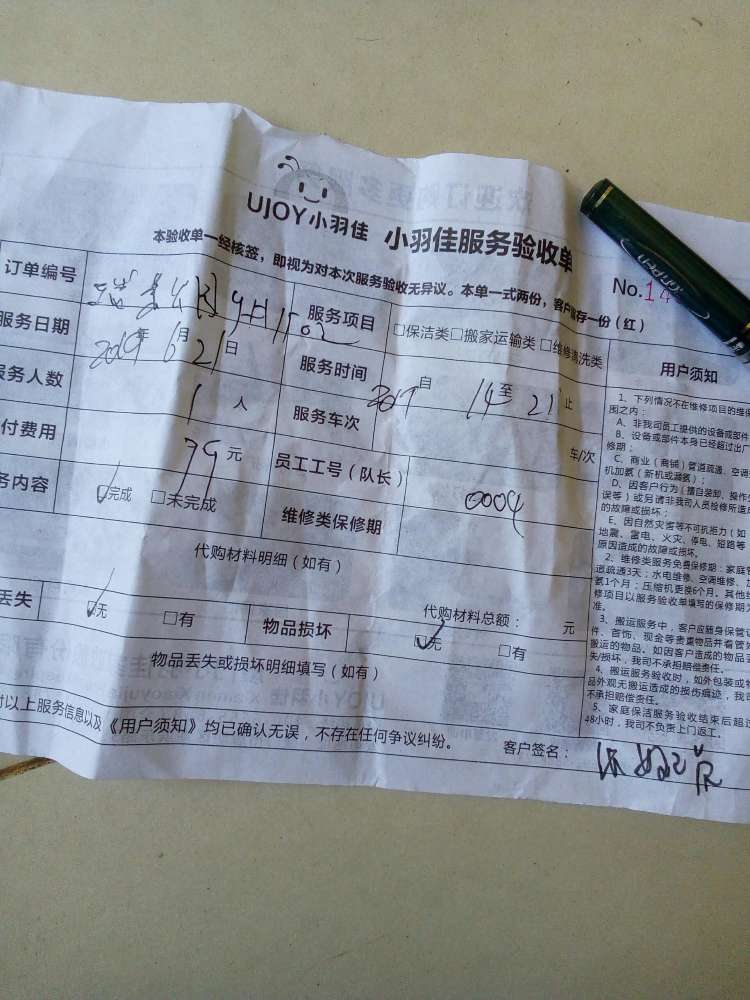 UJOY小羽佳 小羽佳服务验收单
本验收单一经核签，即视为对本次服务验收无异议。本单一式两份，客户留存一份（红）
No.14
订单编号
服务项目 □保洁类□搬家运输类□维修清洗类
服务日期 2019年6月21日
服务时间 自 14至 21止
服务人数 1人
服务车次 车/次
付费用 79元
员工工号（队长） 0004
务内容 ☑完成 □未完成
维修类保修期
代购材料明细（如有）
代购材料总额： 元
丢失 ☑无 □有 物品损坏 ☑无 □有
物品丢失或损坏明细填写（如有）
对以上服务信息以及《用户须知》均已确认无误，不存在任何争议纠纷。
客户签名：
用户须知
1、下列情况不在维修项目的维保
围之内：
A、非我司员工提供的设备或部件
B、设备或部件本身已经超过出厂
修期；
C、商业（商铺）管道疏通、空调
机加氨（新机或漏氨）；
D、因客户行为（擅自装卸、操作
误等）或另请非我司人员检修所造成
的故障或损坏；
E、因自然灾害等不可抗力（如
地震、雷电、火灾、停电、短路等
原因造成的故障或损坏。
2、维修类服务免费保修期：家庭管
道疏通3天；水电维修、空调维修、
氨1个月；压缩机更换6个月。其他维
修项目以服务验收单填写的保修期
准。
3、搬运服务中，客户应随身保管
件、首饰、现金等贵重物品并看管
搬运的物品。如因客户造成的物品
失/损坏，我司不承担赔偿责任。
4、搬运服务验收时，如外包装或物
品外观无搬运造成的损伤痕迹，我
不承担赔偿责任。
5、家庭保洁服务验收结束后超过
48小时，我司不负责上门返工。